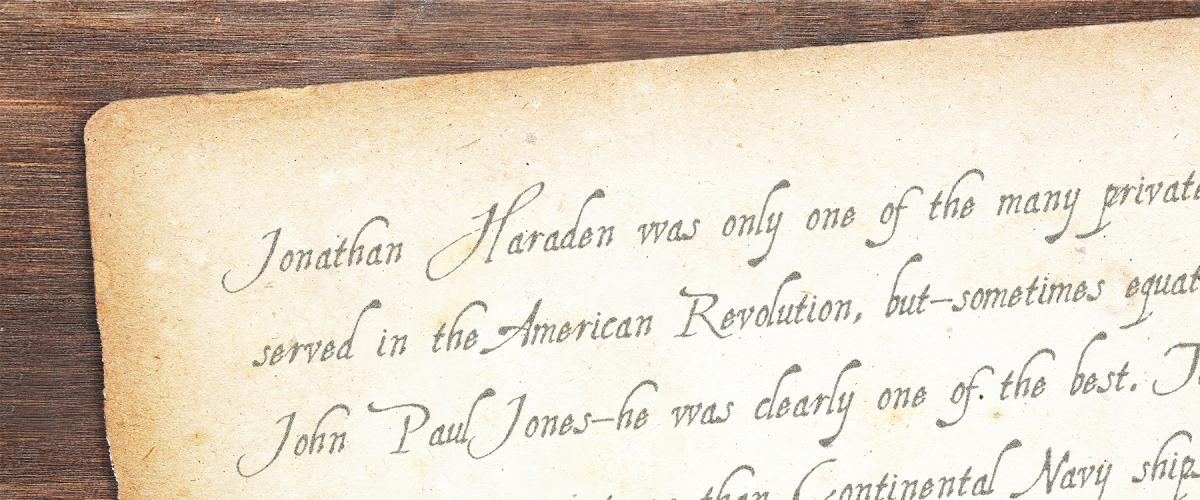 Jonathan Haraden was only one of the many
served in the American Revolution, but—sometimes
John Paul Jones—he was clearly one of the best.
than Continental Navy ships